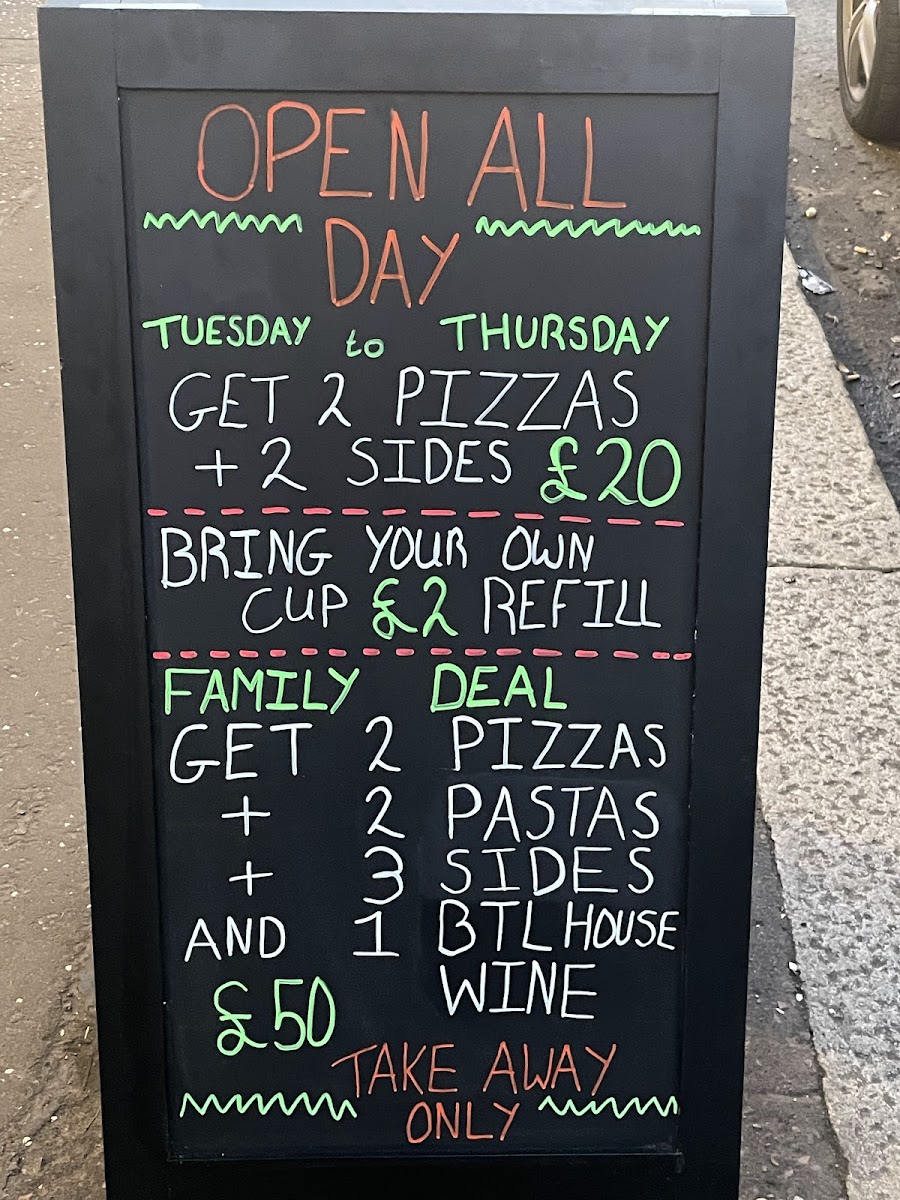 OPEN ALL
DAY
TUESDAY to THURSDAY
GET 2 PIZZAS
+ 2 SIDES £20
BRING YOUR OWN
CUP £2 REFILL
FAMILY DEAL
GET 2 PIZZAS
+ 2 PASTAS
+ 3 SIDES
AND 1 BTL HOUSE
WINE
£50
TAKE AWAY
ONLY